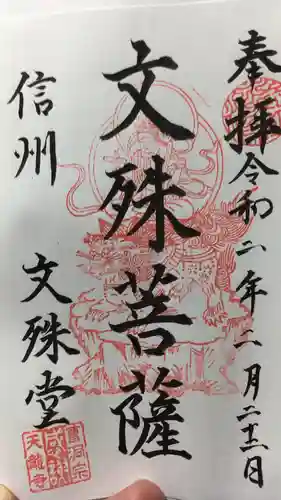 奉拝 令和二年二月二十二日
文殊菩薩
信州 文殊堂
曹洞宗
天龍寺